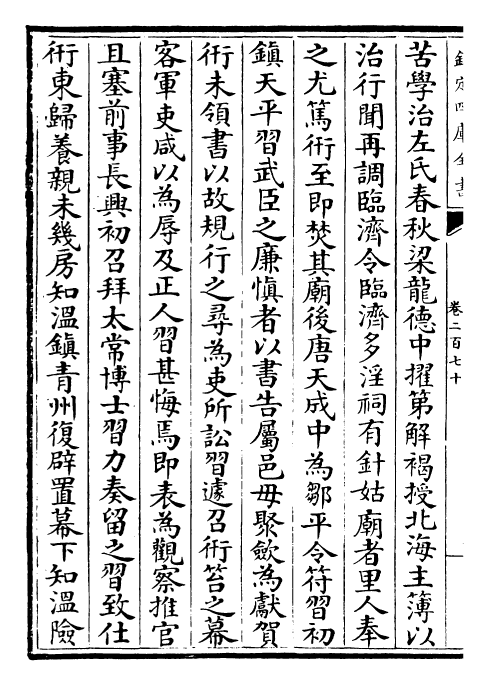 欽定四庫全書
卷二百七十
苦學治左氏春秋梁龍德中擢第解褐授北海主簿以
治行聞再調臨濟令臨濟多淫祠有針姑廟者里人奉
之尤篤術至即焚其廟後唐天成中為鄒平令符習初
鎮天平習武臣之廉慎者以書告屬邑毋聚斂為獻賀
術未領書以故規行之尋為吏所訟習遽召術笞之幕
客軍吏咸以為辱及正人習甚悔焉即表為觀察推官
且塞前事長興初召拜太常博士習力奏留之習致仕
術東歸養親未幾房知溫鎮青州復辟置幕下知溫險